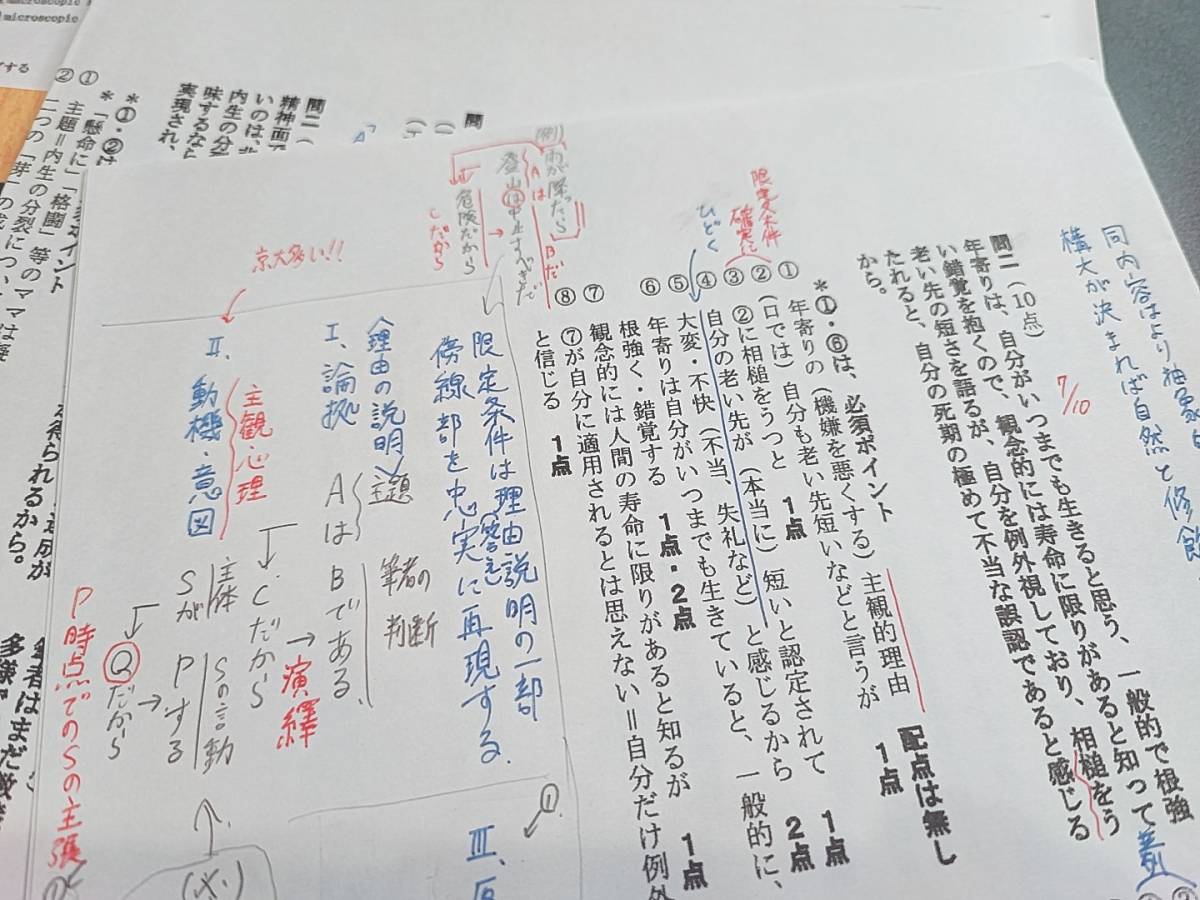 同内容はより抽象
構文が決まれば自然と修飾
7/10
問二(10点)
年寄りは、自分がいつまでも生きると思う、一般的で根強
い錯覚を抱くので、観念的には寿命に限りがあると知って
老い先の短さを語るが、自分を例外視しており、相槌をう
たれると、自分の死期の極めて不当な誤認であると感じる
から。
*①・⑥は、必須ポイント 配点は無し
① 年寄りの(機嫌を悪くする)主観的理由
② (口では)自分も老い先短いなどと言うが 1点
③ ②に相槌をうつと 1点
④ 自分の老い先が(本当に)短いと認定されて 1点
⑤ 大変・不快(不当、失礼など)と感じるから 2点
⑥ 年寄りは自分がいつまでも生きていると、一般的に、
根強く・錯覚する 1点・2点
⑦ 観念的には人間の寿命に限りがあると知るが 1点
⑧ ⑦が自分に適用されるとは思えない=自分だけ例外
と信じる 1点
限定条件
確実に
ひどく
(例)
雨が降ったら
Aは
Bだ
登山は中止すべきだ
危険だから
Cだから
限定条件は理由説明の一部
(答え)
傍線部を忠実に再現する.
〈理由の説明〉
主題
筆者の
判断
Ⅰ、論拠
AはBである.
Cだから
演繹
京大多い!!
Ⅱ、動機・意図
主観心理
主体
Sの言動
SがPする
Qだから
P時点でのSの主張
(※)
①
Ⅲ、
問二(
精神面
内生の分
味するなら
実現され、
*①・②は
ポイント
① 「懸命に」「格闘」等のママは
主題=内生の分裂につ
② 二つの「芽」の
られる
から。
筆者はまだ
多様
microscopic
microscopic
する